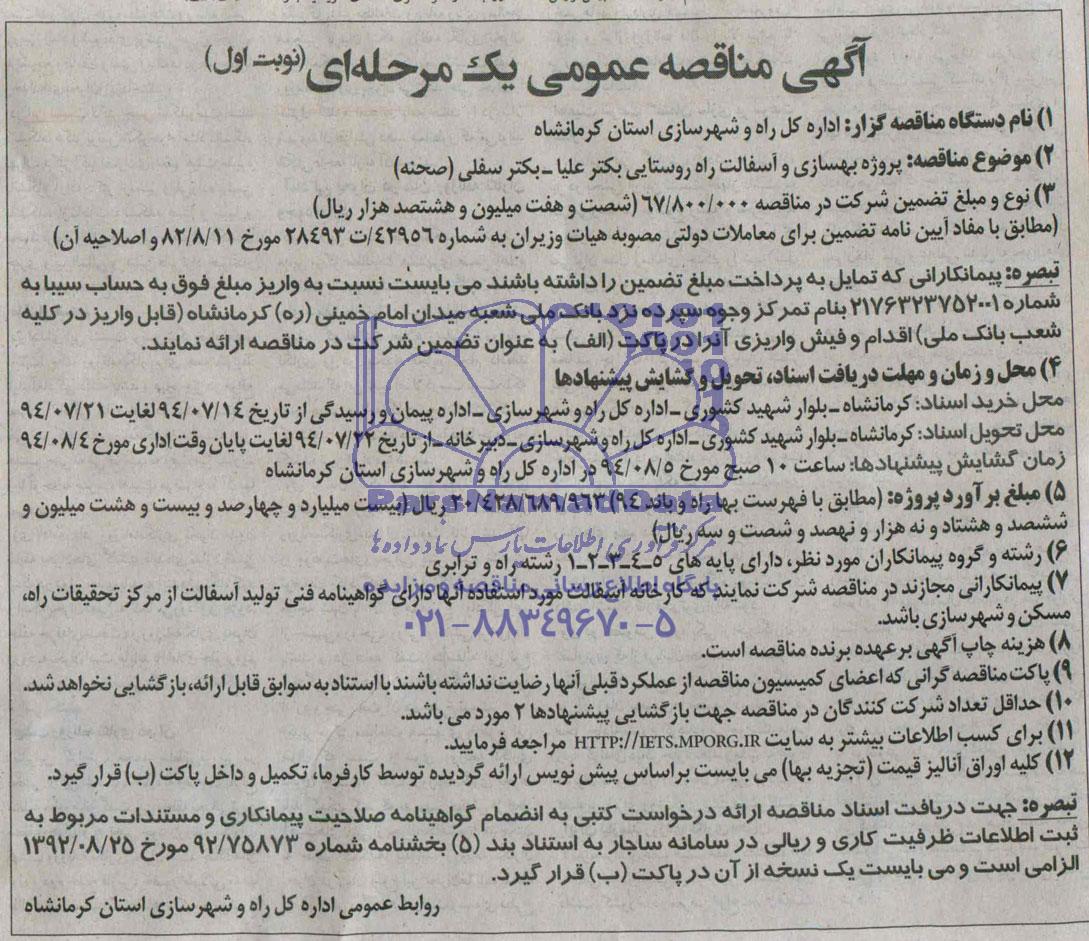 آگهی مناقصه عمومی یک مرحله‌ای (نوبت اول)
۱) نام دستگاه مناقصه گزار: اداره کل راه و شهرسازی استان کرمانشاه
۲) موضوع مناقصه: پروژه بهسازی و آسفالت راه روستایی بکتر علیا ـ بکتر سفلی (صحنه)
۳) نوع و مبلغ تضمین شرکت در مناقصه ۶۷/۸۰۰/۰۰۰ (شصت و هفت میلیون و هشتصد هزار ریال)
(مطابق با مفاد آیین نامه تضمین برای معاملات دولتی مصوبه هیات وزیران به شماره ۴۲۹۵۶/ت ۲۸۴۹۳ مورخ ۸۲/۸/۱۱ و اصلاحیه آن)
تبصره: پیمانکارانی که تمایل به پرداخت مبلغ تضمین را داشته باشند می بایست نسبت به واریز مبلغ فوق به حساب سیبا به
شماره ۲۱۷۶۳۲۳۷۵۲۰۰۱ بنام تمرکز وجوه سپرده نزد بانک ملی شعبه میدان امام خمینی (ره) کرمانشاه (قابل واریز در کلیه
شعب بانک ملی) اقدام و فیش واریزی آنرا در پاکت (الف) به عنوان تضمین شرکت در مناقصه ارائه نمایند.
۴) محل و زمان و مهلت دریافت اسناد، تحویل و گشایش پیشنهادها
محل خرید اسناد: کرمانشاه ـ بلوار شهید کشوری ـ اداره کل راه و شهرسازی ـ اداره پیمان و رسیدگی از تاریخ ۹۴/۰۷/۱۴ لغایت ۹۴/۰۷/۲۱
محل تحویل اسناد: کرمانشاه ـ بلوار شهید کشوری ـ اداره کل راه و شهرسازی ـ دبیرخانه ـ از تاریخ ۹۴/۰۷/۲۲ لغایت پایان وقت اداری مورخ ۹۴/۰۸/۴
زمان گشایش پیشنهادها: ساعت ۱۰ صبح مورخ ۹۴/۰۸/۵ در اداره کل راه و شهرسازی استان کرمانشاه
۵) مبلغ برآورد پروژه: (مطابق با فهرست بها راه و باند ۹۴) ۲۰/۴۲۸/۶۸۹/۹۶۳ ریال (بیست میلیارد و چهارصد و بیست و هشت میلیون و
ششصد و هشتاد و نه هزار و نهصد و شصت و سه ریال)
۶) رشته و گروه پیمانکاران مورد نظر، دارای پایه های ۵ـ۴ـ۳ـ۲ـ۱ رشته راه و ترابری
۷) پیمانکارانی مجازند در مناقصه شرکت نمایند که کارخانه آسفالت مورد استفاده آنها دارای گواهینامه فنی تولید آسفالت از مرکز تحقیقات راه،
مسکن و شهرسازی باشد.
۸) هزینه چاپ آگهی بر عهده برنده مناقصه است.
۹) پاکت مناقصه گرانی که اعضای کمیسیون مناقصه از عملکرد قبلی آنها رضایت نداشته باشند با استناد به سوابق قابل ارائه، بازگشایی نخواهد شد.
۱۰) حداقل تعداد شرکت کنندگان در مناقصه جهت بازگشایی پیشنهادها ۲ مورد می باشد.
۱۱) برای کسب اطلاعات بیشتر به سایت HTTP://IETS.MPORG.IR مراجعه فرمایید.
۱۲) کلیه اوراق آنالیز قیمت (تجزیه بها) می بایست براساس پیش نویس ارائه گردیده توسط کارفرما، تکمیل و داخل پاکت (ب) قرار گیرد.
تبصره: جهت دریافت اسناد مناقصه ارائه درخواست کتبی به انضمام گواهینامه صلاحیت پیمانکاری و مستندات مربوط به
ثبت اطلاعات ظرفیت کاری و ریالی در سامانه ساجار به استناد بند (۵) بخشنامه شماره ۹۲/۷۵۸۷۳ مورخ ۱۳۹۲/۰۸/۲۵
الزامی است و می بایست یک نسخه از آن در پاکت (ب) قرار گیرد.
روابط عمومی اداره کل راه و شهرسازی استان کرمانشاه
ParsNamadData
مرکز فرآوری اطلاعات پارس نماد داده‌ها
پایگاه اطلاع رسانی مناقصه و مزایده
۰۲۱-۸۸۳۴۹۶۷۰-۵